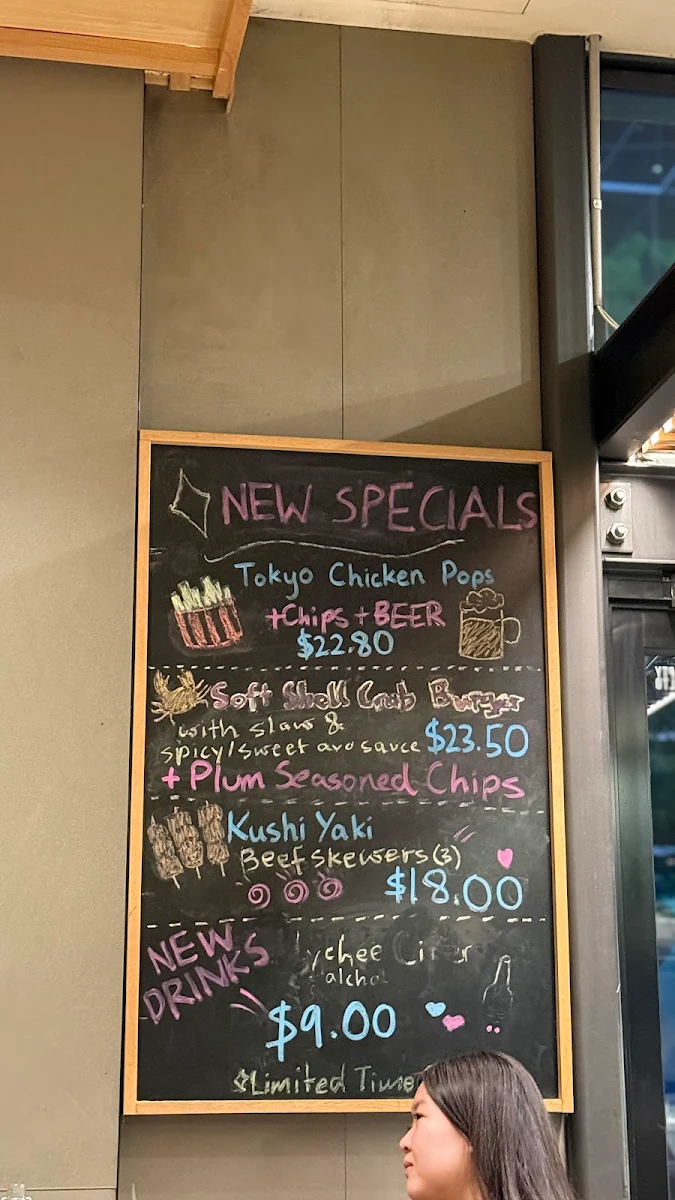 NEW SPECIALS
Tokyo Chicken Pops
+Chips + BEER
$22.80
Soft Shell Crab Burger
with slaw &
spicy/sweet avo sauce $23.50
+ Plum Seasoned Chips
Kushi Yaki
Beef skewers (3)
$18.00
NEW
DRINKS
$9.00
Limited Time